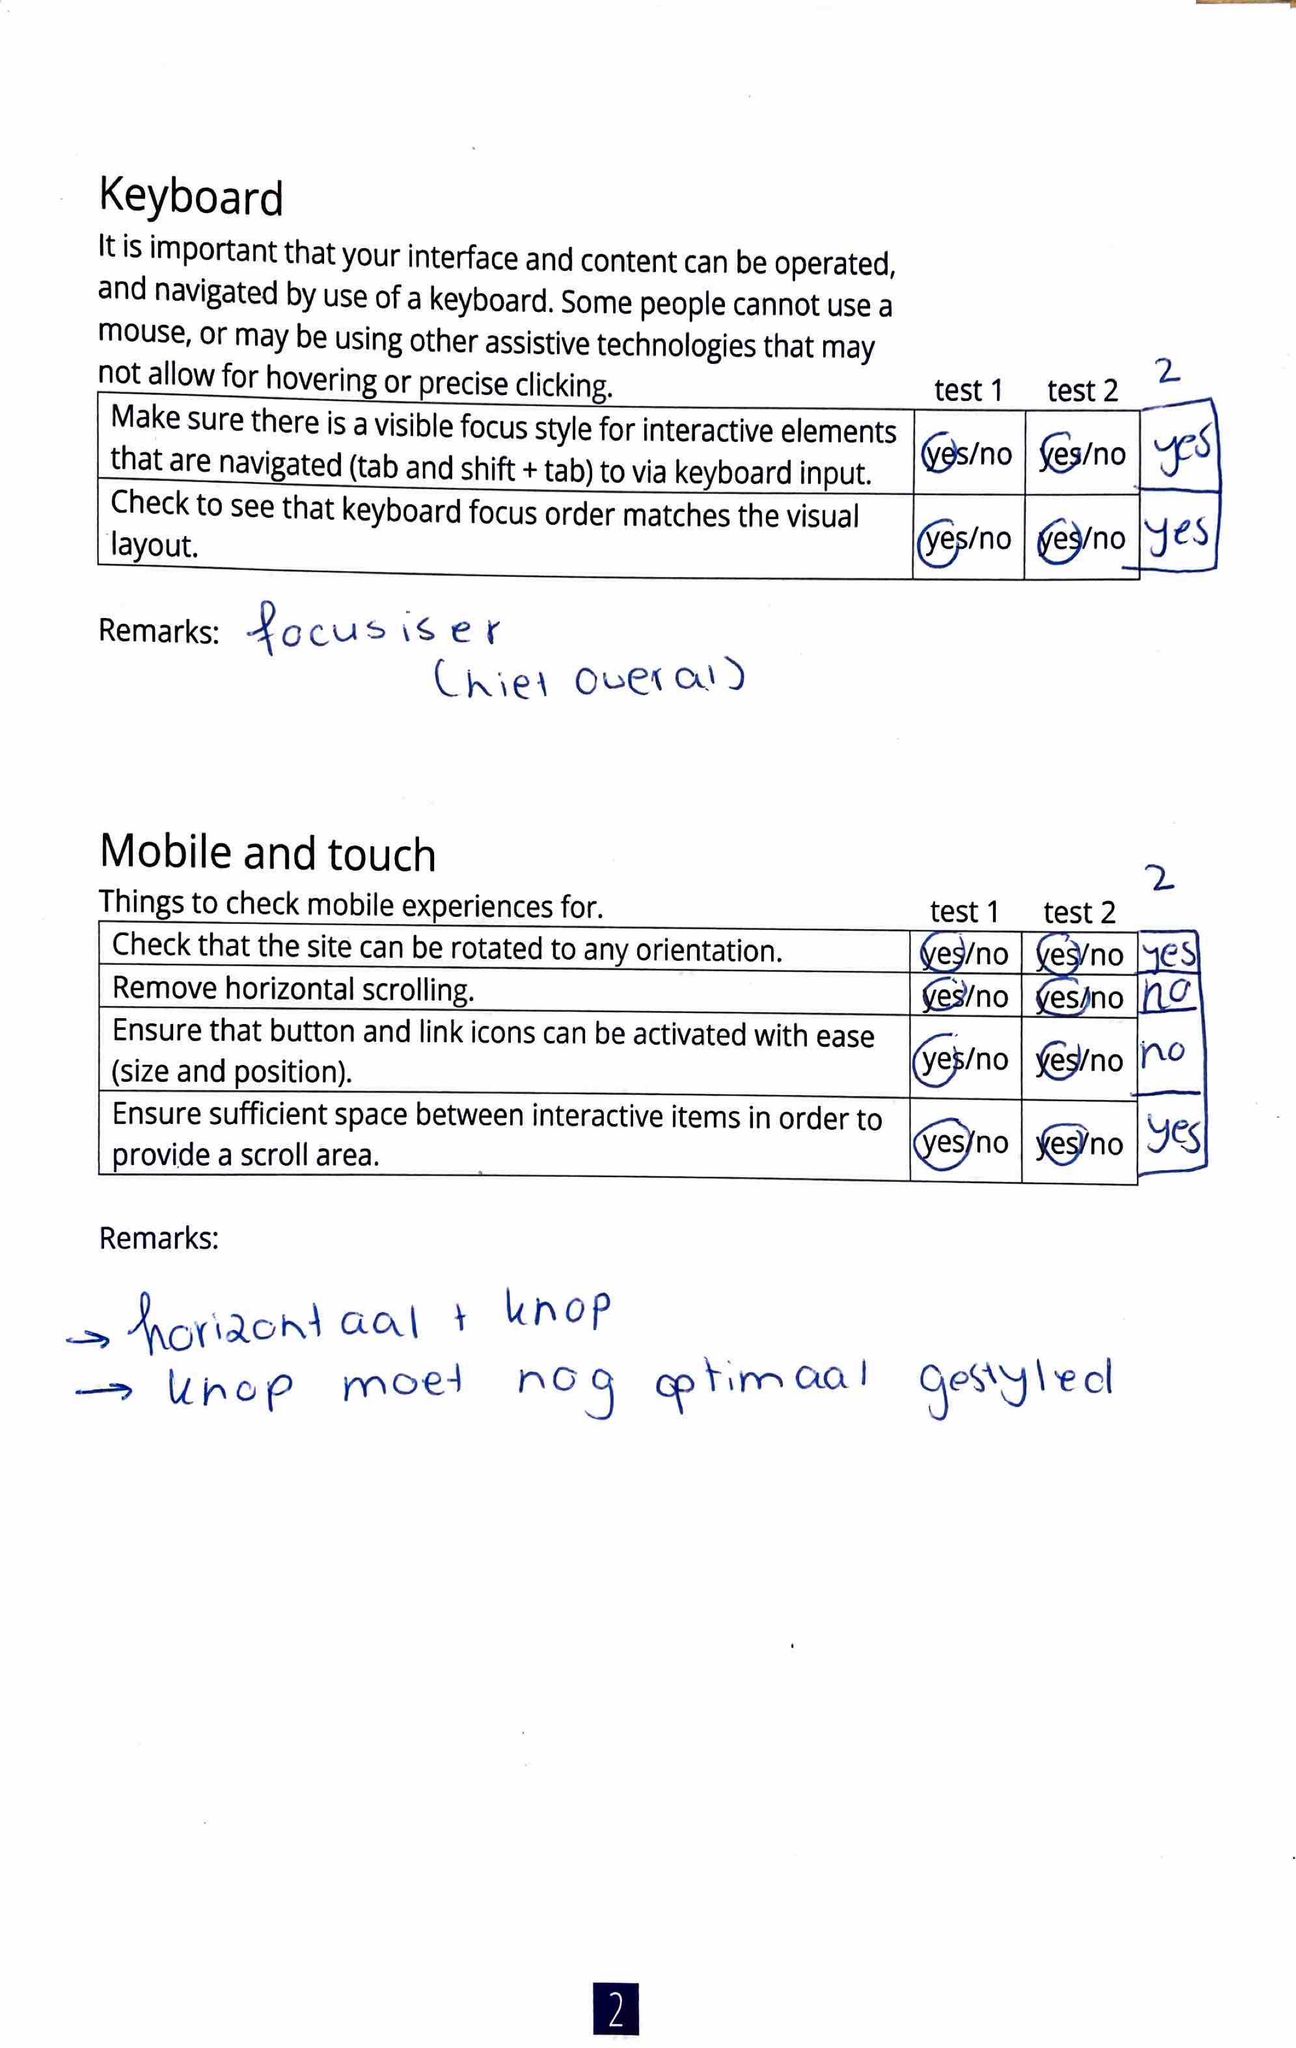 Keyboard
It is important that your interface and content can be operated,
and navigated by use of a keyboard. Some people cannot use a
mouse, or may be using other assistive technologies that may
not allow for hovering or precise clicking.
test 1 test 2 2
Make sure there is a visible focus style for interactive elements
that are navigated (tab and shift + tab) to via keyboard input.
yes/no yes/no yes
Check to see that keyboard focus order matches the visual
layout.
yes/no yes/no yes
Remarks: focus is er
(niet overal)
Mobile and touch
2
Things to check mobile experiences for. test 1 test 2
Check that the site can be rotated to any orientation. yes/no yes/no yes
Remove horizontal scrolling. yes/no yes/no no
Ensure that button and link icons can be activated with ease
(size and position).
yes/no yes/no no
Ensure sufficient space between interactive items in order to
provide a scroll area.
yes/no yes/no yes
Remarks:
→ horizontaal + knop
→ knop moet nog optimaal gestyled
2